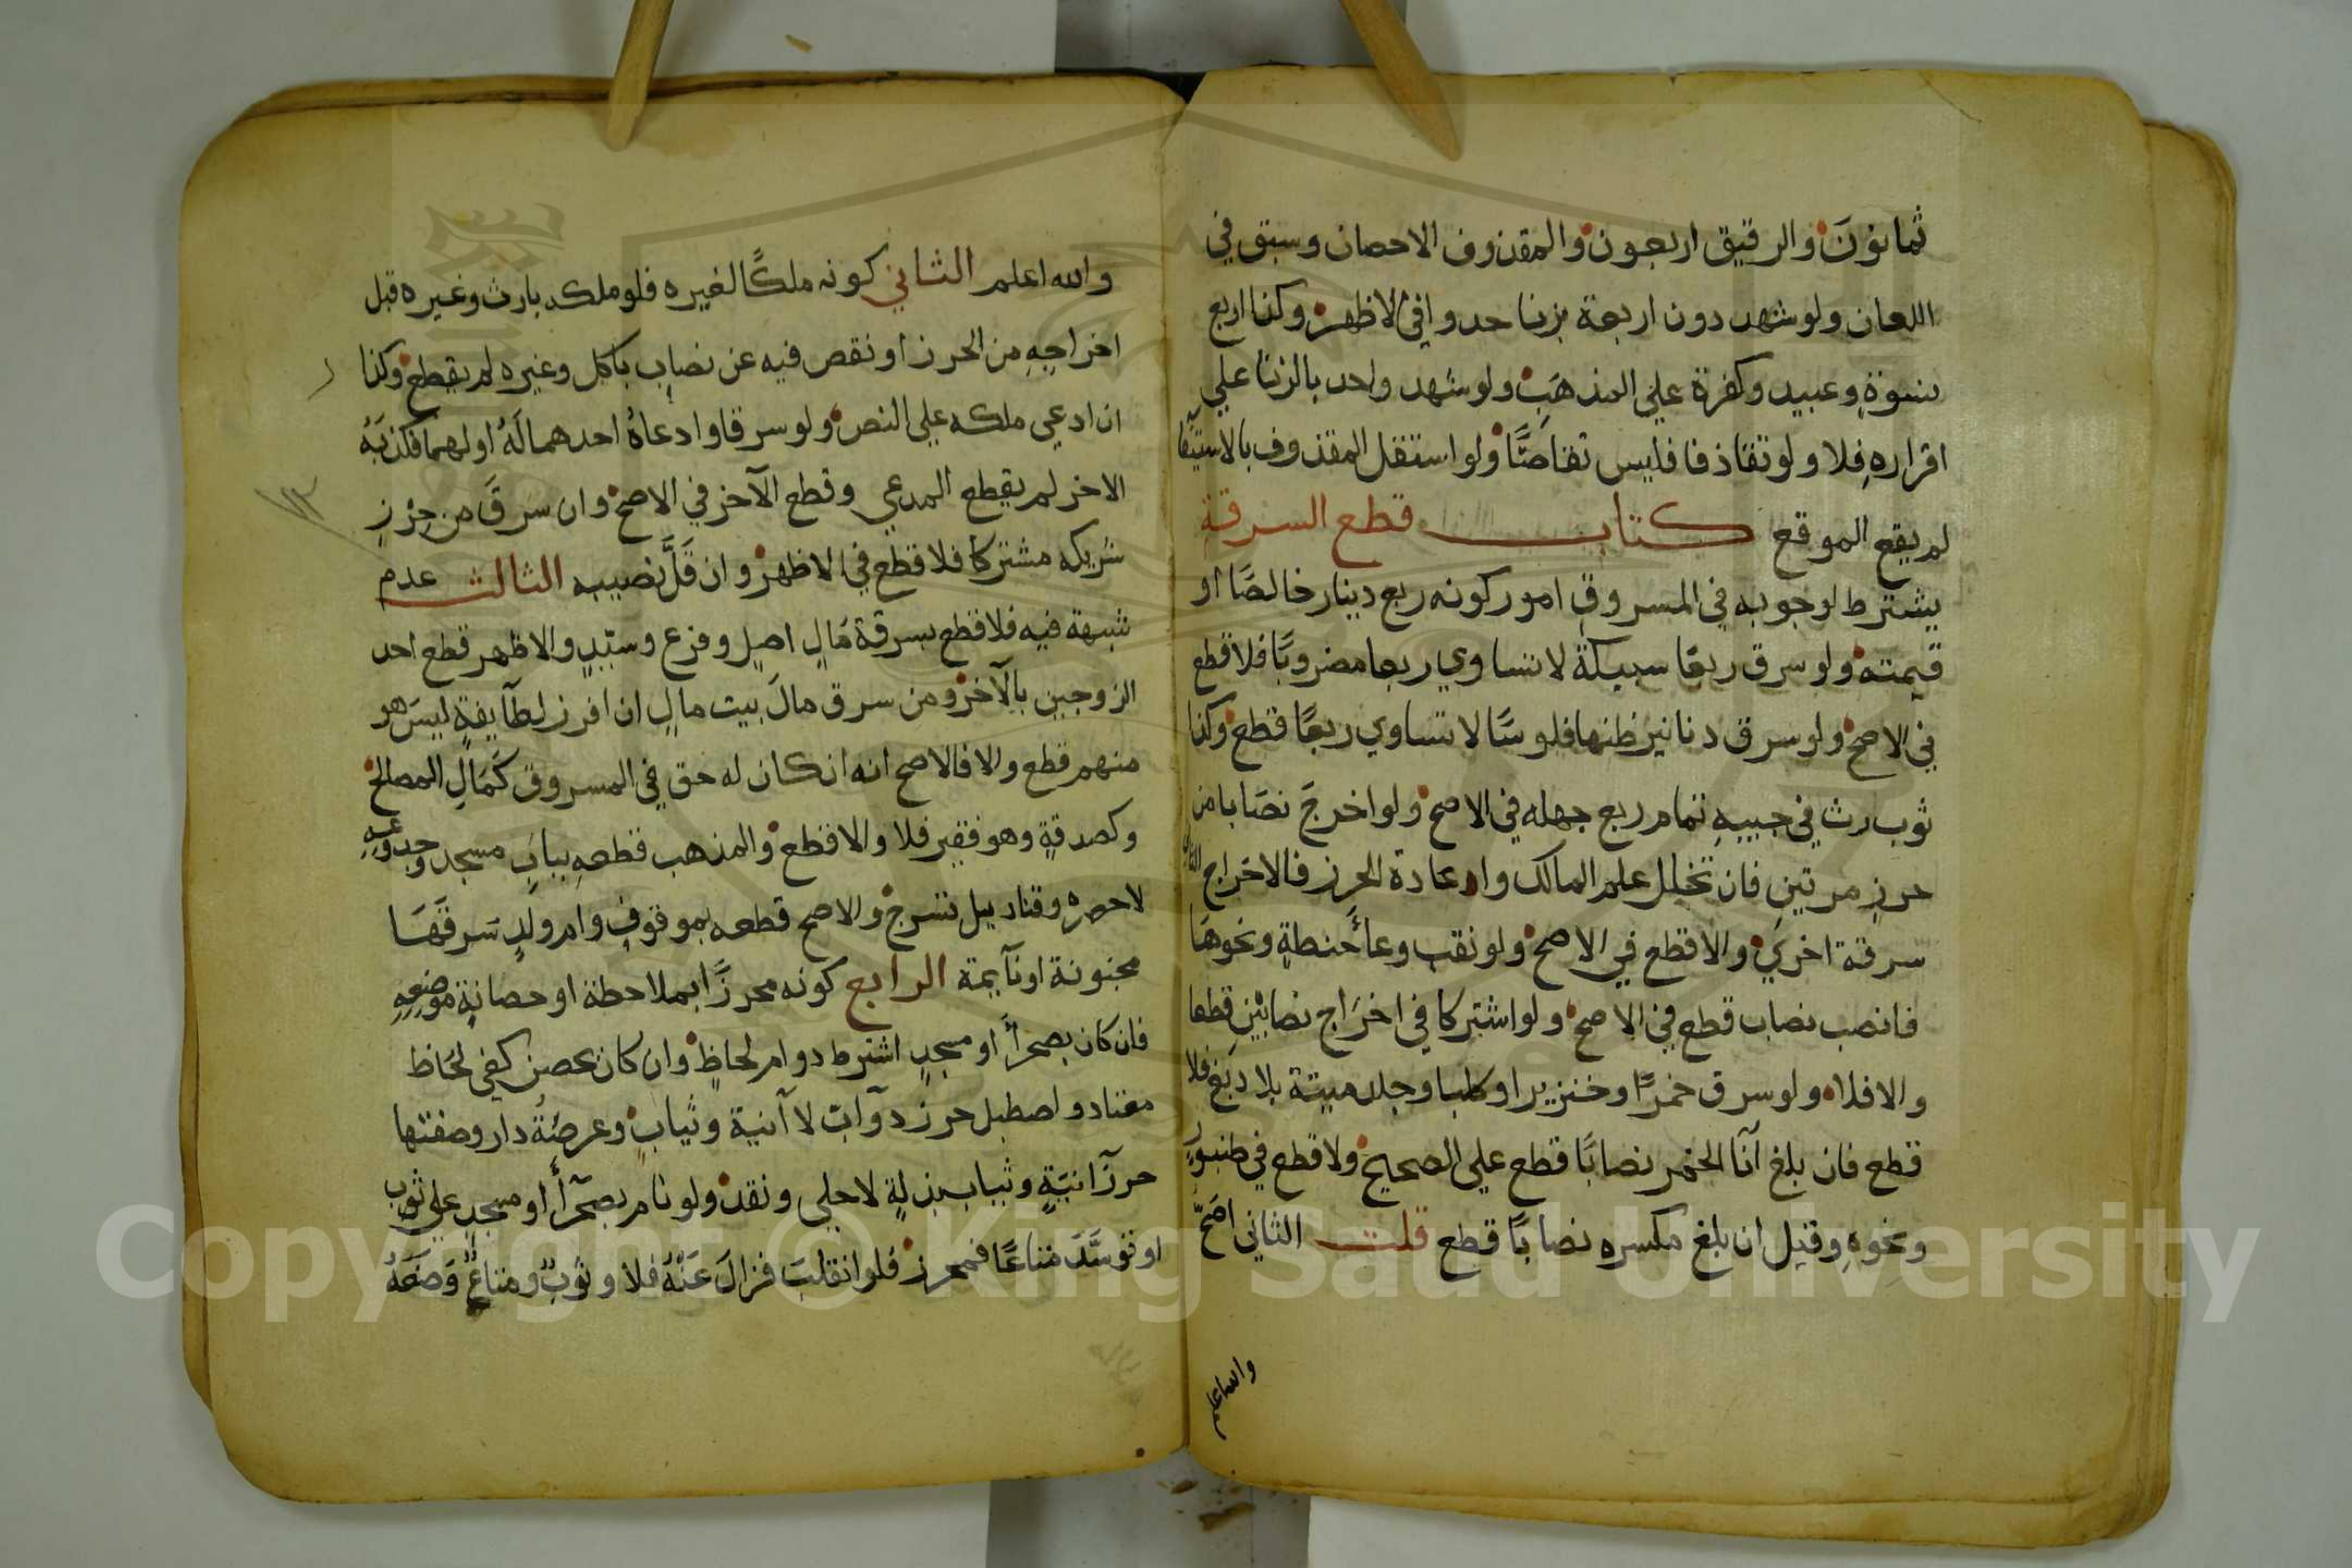 ثمانونَ والرقيق اربعون والمقذوف الاحصان وسبق في
اللعان ولو شهد دون اربعة بزنا حدوا في الاظهر وكذا اربع
نسوةٍ وعبيد وكفرة علي المذهَبِ ولو شهد واحد بالزنا علي
اقرارهِ فلا ولو تقاذفا فليس تقاصًّا ولو استقل المقذوف بالاستيفا
لم يقع الموقع كتاب قطع السرقة
يشترط لوجوبه في المسروق امور كونه ربع دينار خالصًا او
قيمته ولو سرق ربعًا سبيكةً لا تساوي ربعا مضروبًا فلا قطع
في الاصح ولو سرق دنانير ظنها فلوسًا لا تساوي ربعًا قطع وكذا
ثوب رث في جيبهِ تمام ربع جهله في الاصح ولو اخرجَ نصَابا من
حرزٍ مرتين فان تخلل علم المالك واعادة الحرز فالاخراج الثاني
سرقة اخري والا قطع في الاصح ولو نقب وعاءَ حنطةٍ ونحوهَا
فانصب نصاب قطع في الاصح ولو اشتركا في اخرَاج نصابَيْنِ قطعا
والا فلا ولو سرق خمرًا وخنزيرا وكلبا وجلد ميتة بلا دَبغ فلا
قطع فان بلغ آنا الخمر نصابًا قطع علي الصحيح ولا قطع في طنبورٍ
ونحوهِ وقيل ان بلغ مكسره نصابًا قطع قلت الثاني اصَحّ
والله اعلم
والله اعلم الثاني كونه ملكًا لغيره فلو ملكه بارث وغيره قبل
اخراجهِ من الحرز او نقص فيه عن نصابٍ باكل وغيره لم يقطع وكذا
ان ادعي ملكه علي النص ولو سرقا وادعاهُ احدهما لَهُ او لهما فكذبَهُ
الاخر لم يقطع المدعي وقطع الآخر في الاصح وان سَرقَ من حِرْزِ
شريكه مشتركا فلا قطع في الاظهر وان قَلَّ نصيبه الثالث عدم
شبهة فيه فلا قطع بسرقة مَالِ اصلٍ وفرع وسيّدٍ والاظهر قطع احد
الزوجين بالآخر ومن سرق مالَ بيت مالٍ ان افرز لطآيفةٍ ليسَ هو
منهم قطع والا فالاصح انه ان كان له حق في المسروق كَمَالِ المصالح
وكصدقةٍ وهو فقير فلا والا قطع والمذهب قطعهِ ببابِ مسجد وجدوعِهِ
لا حصره وقناديل تسرج والاصح قطعه بموقوفٍ وام ولدٍ سَرقهَا
مجنونة او نآيمة الرابع كونه محرزًا بملاحظة او حصانةٍ موضعِهِ
فان كان بصحراءَ او مسجدٍ اشترط دوام لحاظٍ وان كان بحصن كفي لحَاظ
معتاد واصطبل حرز دوآبّ لا آنية وثيابٍ وعرصَةُ دار وصفتها
حرز آنيَةٍ وثياب بذلةٍ لا حلي ونقد ولو نام بصحرآءَ او مسجدٍ علي ثوب
او توسَّدَ متاعًا فمحرز فلو انقلبَ فزالَ عَنْهُ فلا وثوبٌ ومتاعٌ وَضعَهُ